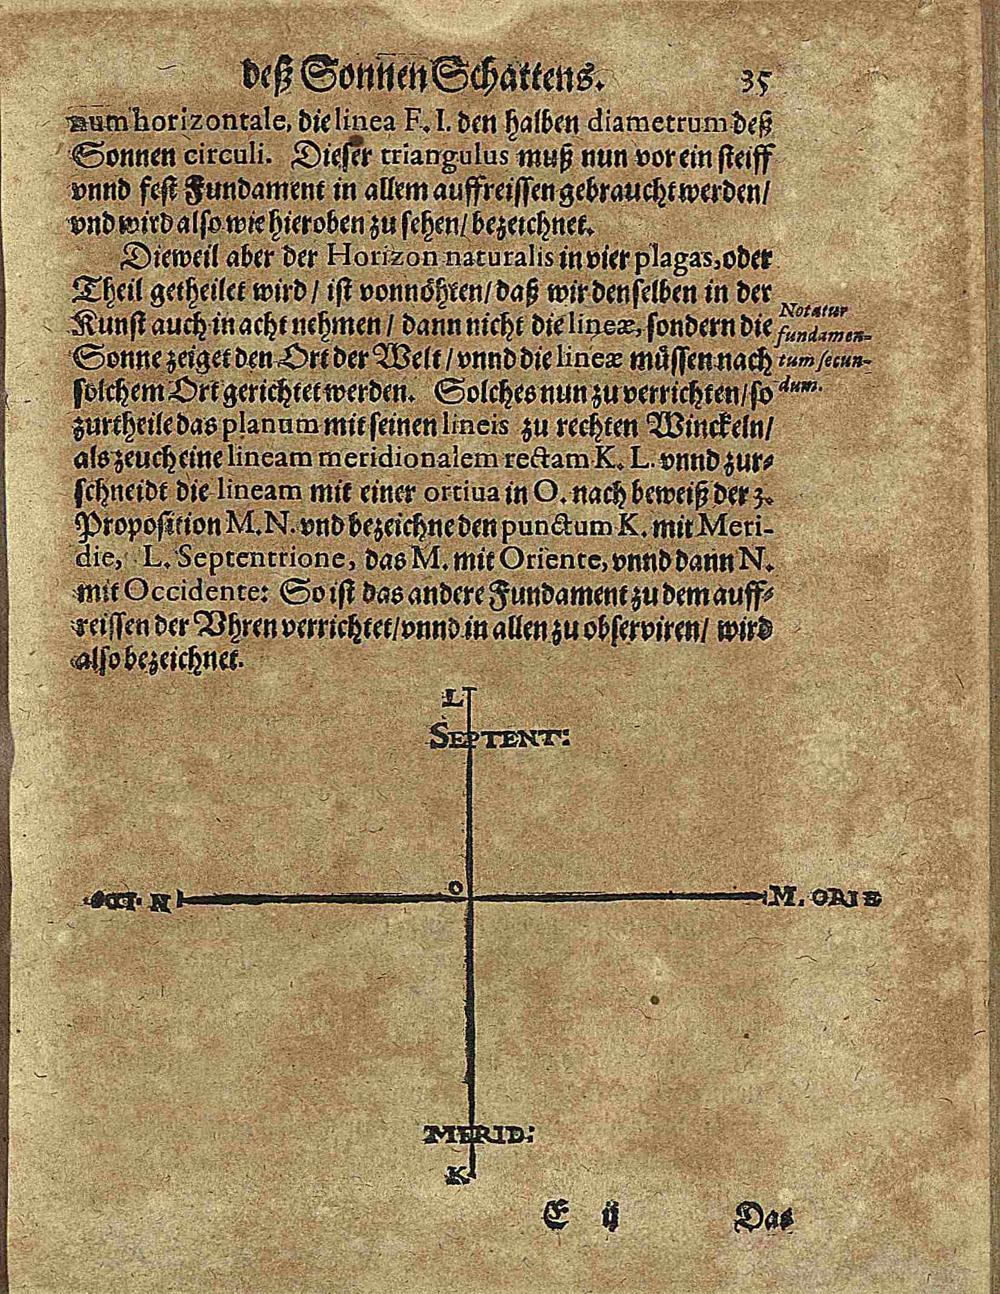 deß Sonnen Schattens. 35
num horizontale, die linea F. I. den halben diametrum deß
Sonnen circuli. Dieser triangulus muß nun vor ein steiff
vnnd fest Fundament in allem auffreissen gebraucht werden/
vnd wird also wie hieroben zu sehen/ bezeichnet.
Dieweil aber der Horizon naturalis in vier plagas, oder
Theil getheilet wird / ist vonnöhten/ daß wir denselben in der
Kunst auch in acht nehmen / dann nicht die lineæ, sondern die
Sonne zeiget den Ort der Welt / vnnd die lineæ müssen nach
solchem Ort gerichtet werden. Solches nun zu verrichten/ so
zurtheile das planum mit seinen lineis zu rechten Winckeln/
als zeuch eine lineam meridionalem rectam K. L. vnnd zur⸗
schneidt die lineam mit einer ortiua in O. nach beweiß der 3.
Proposition M. N. vnd bezeichne den punctum K. mit Meri-
die, L. Septentrione, das M. mit Oriente, vnnd dann N.
mit Occidente: So ist das andere Fundament zu dem auff⸗
reissen der Vhren verrichtet/ vnnd in allen zu observiren/ wird
also bezeichnet.
Notatur
fundamen-
tum secun-
dum.
L
SEPTENT:
O
OCCI. N
M. ORIE
MERID:
K
E ij Das